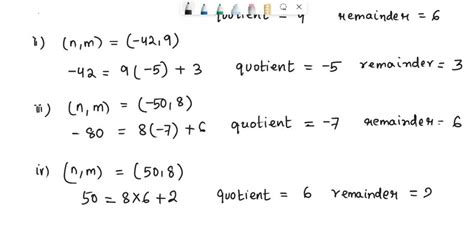 quotient = 4 remainder = 6
ii) (n,m) = (-42,9)
-42 = 9(-5) + 3 quotient = -5 remainder = 3
iii) (n,m) = (-50,8)
-80 = 8(-7) + 6 quotient = -7 remainder = 6
iv) (n,m) = (50,8)
50 = 8×6 + 2 quotient = 6 remainder = 2